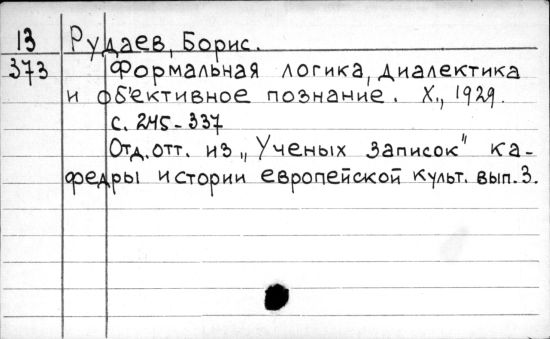 13 Рудаев, Борис.
373 Формальная логика, диалектика
и об'ективное познание. Х., 1929.
с. 245-337
Отд. отт. из „Ученых Записок" ка-
федры истории европейской культ. вып. 3.